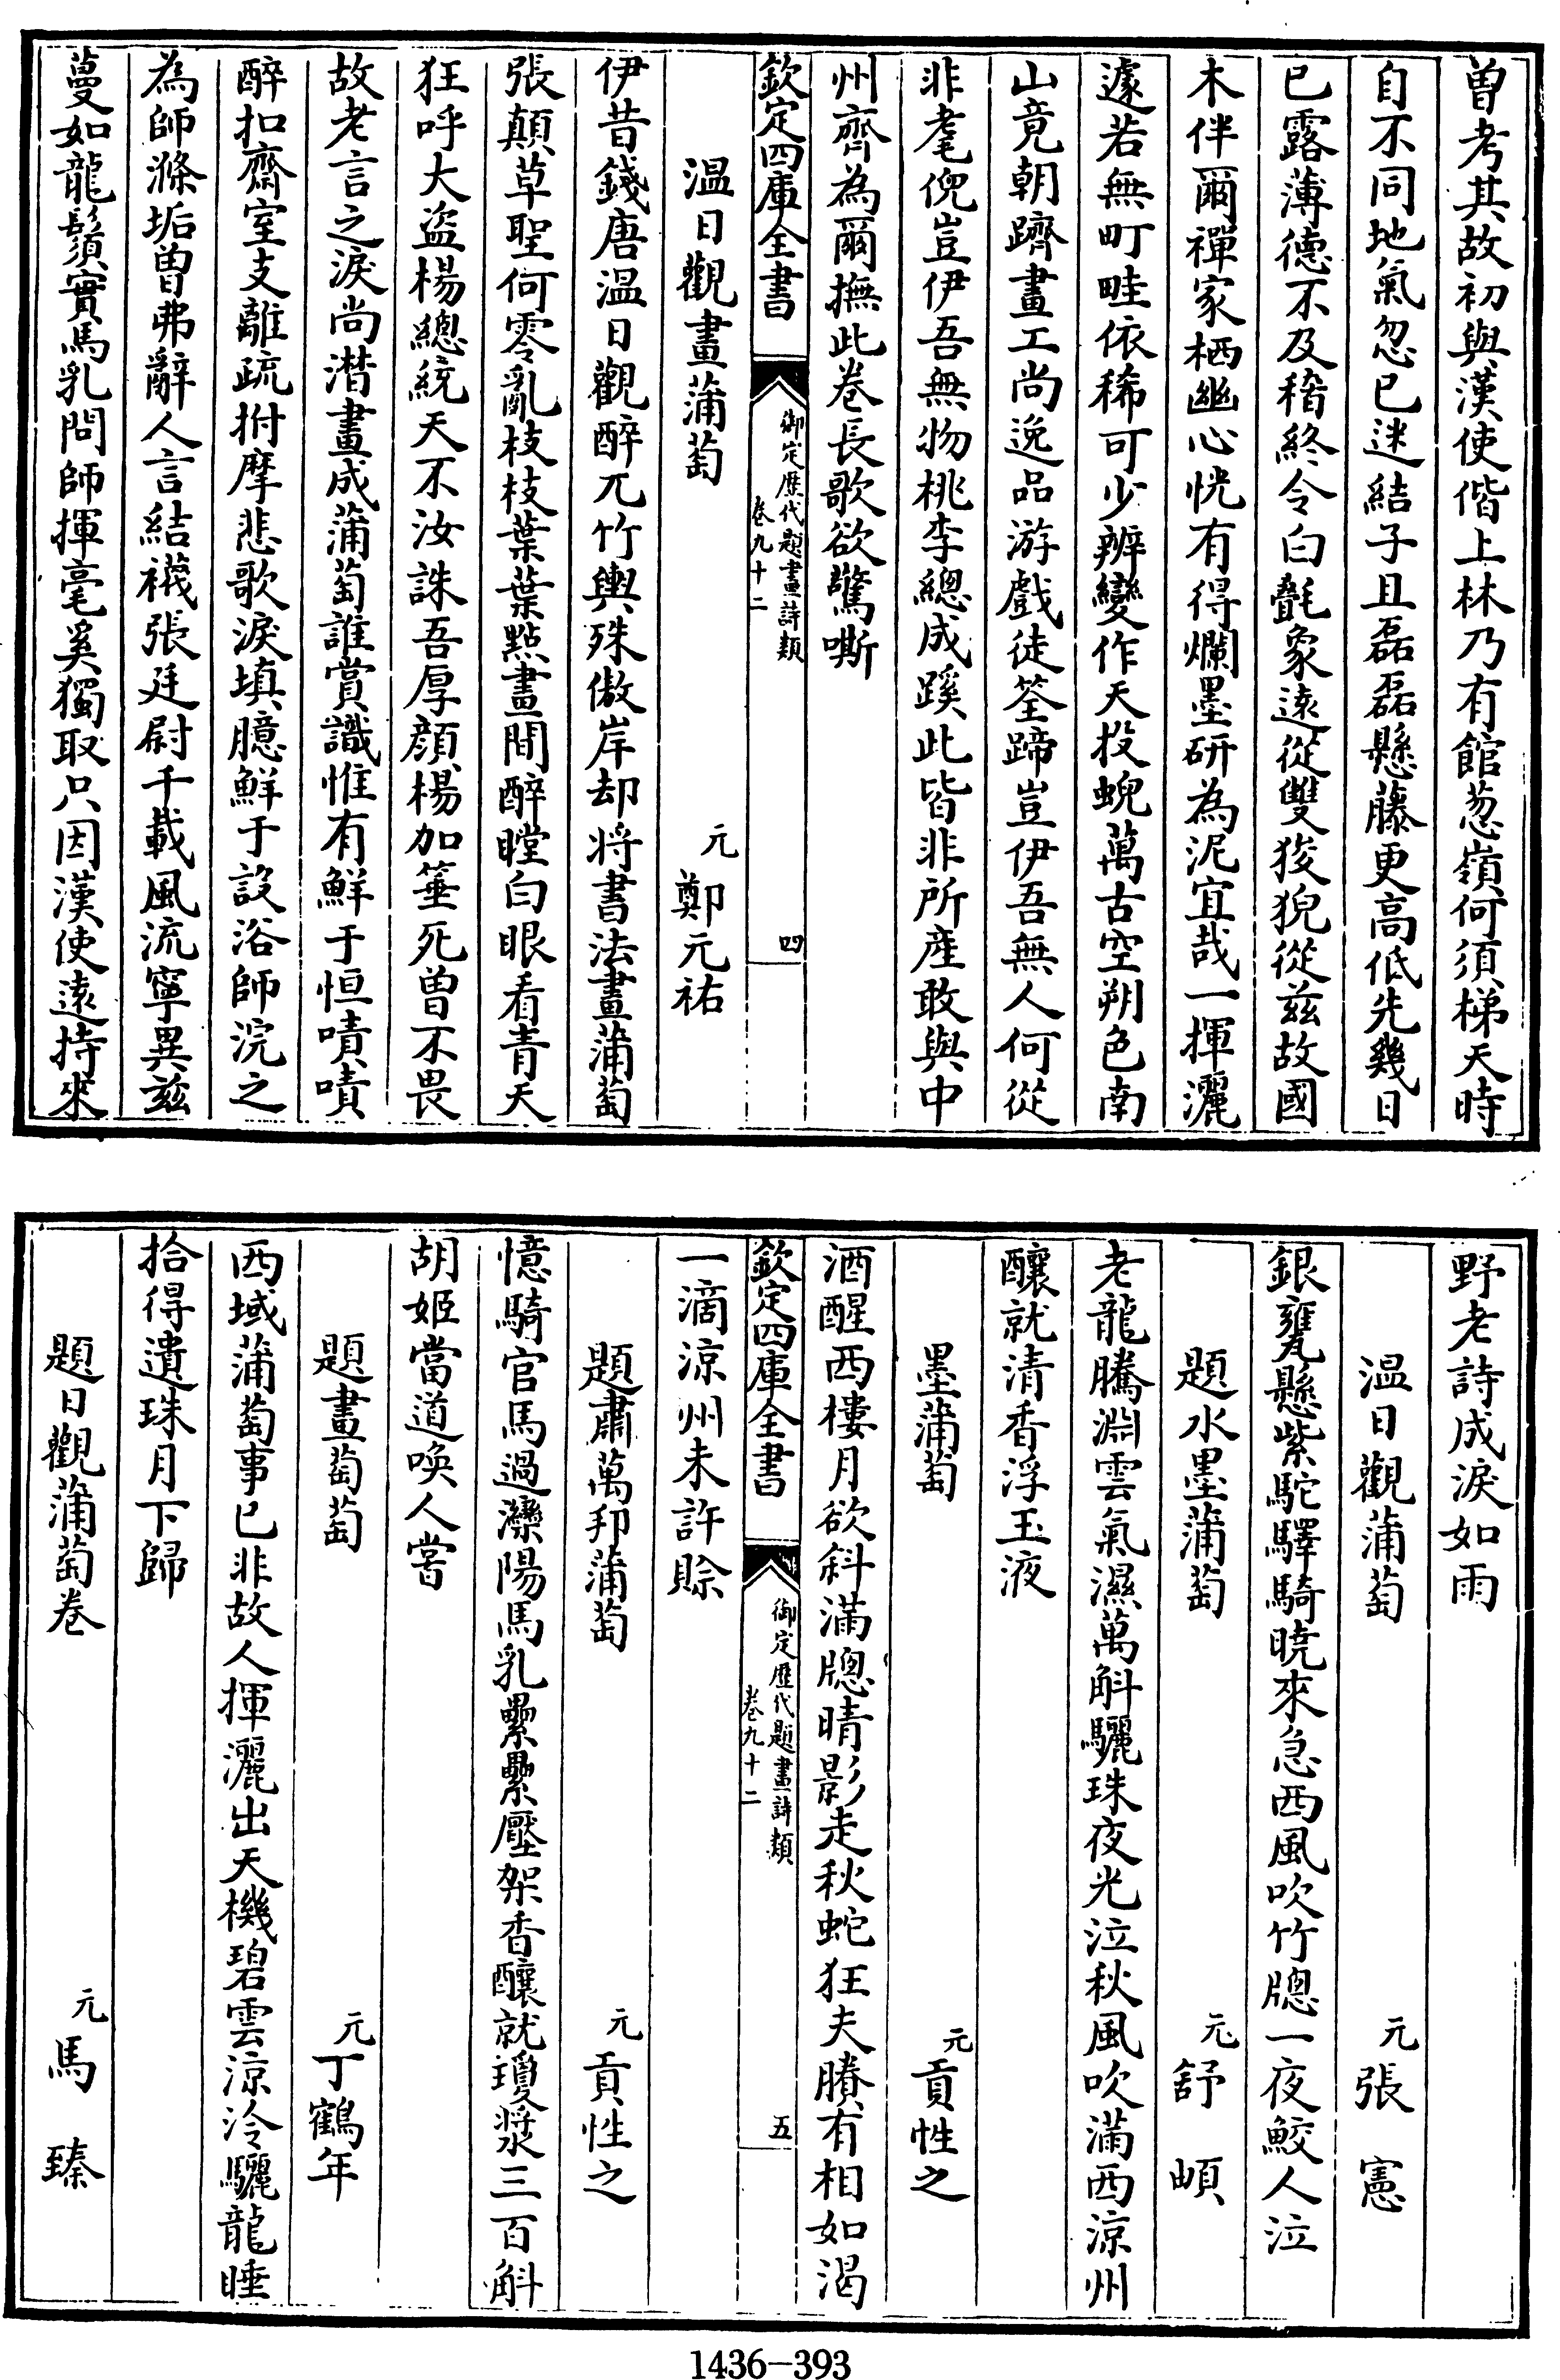 曽考其故初與漢使偕上林乃有館葱嶺何須梯天時
自不同地氣忽已迷結子且磊磊懸藤更髙低先幾日
已露薄徳不及稽終令白㲲象逺從雙狻猊從兹故國
木伴爾禪家栖幽心恍有得爛墨研為泥宜哉一揮灑
遽若無町畦依稀可少辨變作天投蜺萬古空朔色南
山竟朝隮畫工尚逸品游戲徒筌蹄豈伊吾無人何從
非耄倪豈伊吾無物桃李總成蹊此皆非所産敢與中
州齊為爾撫此卷長歌欲驚嘶
欽定四庫全書
御定歴代題畫詩類
卷九十二
四
温日觀畫蒲萄
元鄭元祐
伊昔錢唐温日觀醉兀竹輿殊傲岸却将書法畫蒲萄
張顛草聖何零亂枝枝葉葉㸃畫間醉瞠白眼看青天
狂呼大盗楊總統天不汝誅吾厚顔楊加箠死曽不畏
故老言之淚尚潸畫成蒲萄誰賞識惟有鮮于恒嘖嘖
醉扣齋室支離疏拊摩悲歌淚填臆鮮于設浴師浣之
為師滌垢曽弗辭人言結襪張廷尉千載風流寧異兹
蔓如龍鬚實馬乳問師揮毫奚獨取只因漢使逺持來
野老詩成淚如雨
温日觀蒲萄
元張憲
銀甕懸紫駝驛騎曉來急西風吹竹牕一夜鮫人泣
題水墨蒲萄
元舒頔
老龍騰淵雲氣濕萬斛驪珠夜光泣秋風吹滿西涼州
釀就清香浮玉液
墨蒲萄
元貢性之
酒醒西樓月欲斜滿牕晴影走秋蛇狂夫賸有相如渇
欽定四庫全書
御定歴代題畫詩類
卷九十二
五
一滴凉州未許賒
題肅萬邦蒲萄
元貢性之
憶騎官馬過灤陽馬乳纍纍壓架香釀就瓊漿三百斛
胡姬當道喚人嘗
題畫萄萄
元丁鶴年
西域蒲萄事已非故人揮灑出天機碧雲凉冷驪龍睡
拾得遺珠月下歸
題日觀蒲萄卷
元馬臻
1436-393